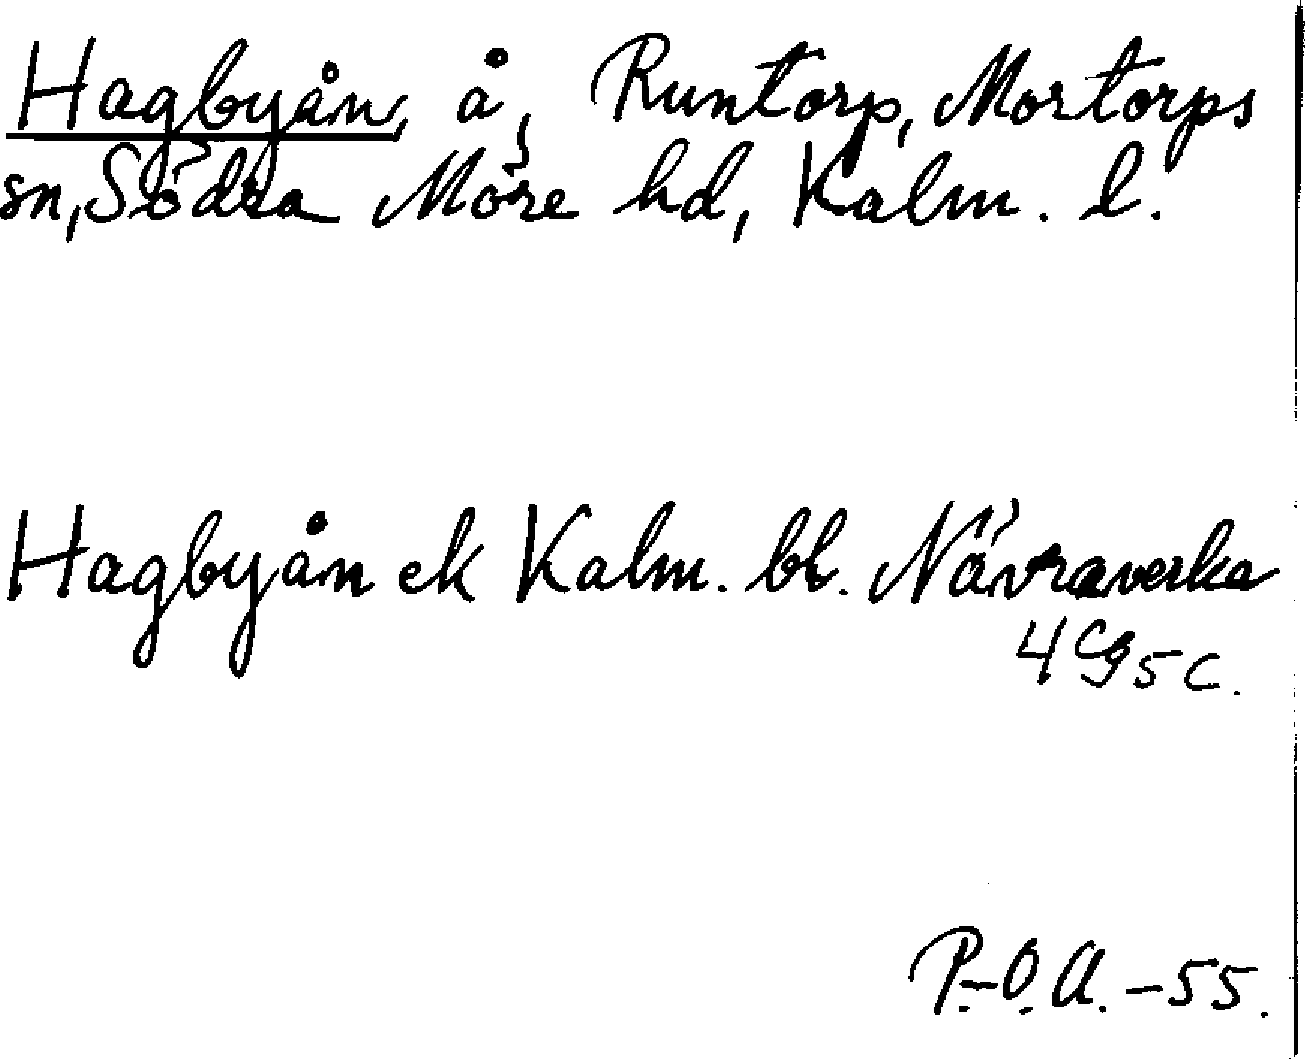 Hagbyån, å, Runtorp, Mortorps
sn, Södra Möre hd, Kalm. l.
Hagbyån ek Kalm. bl. Nävraverka
4G5C.
P.-O.A. -55.